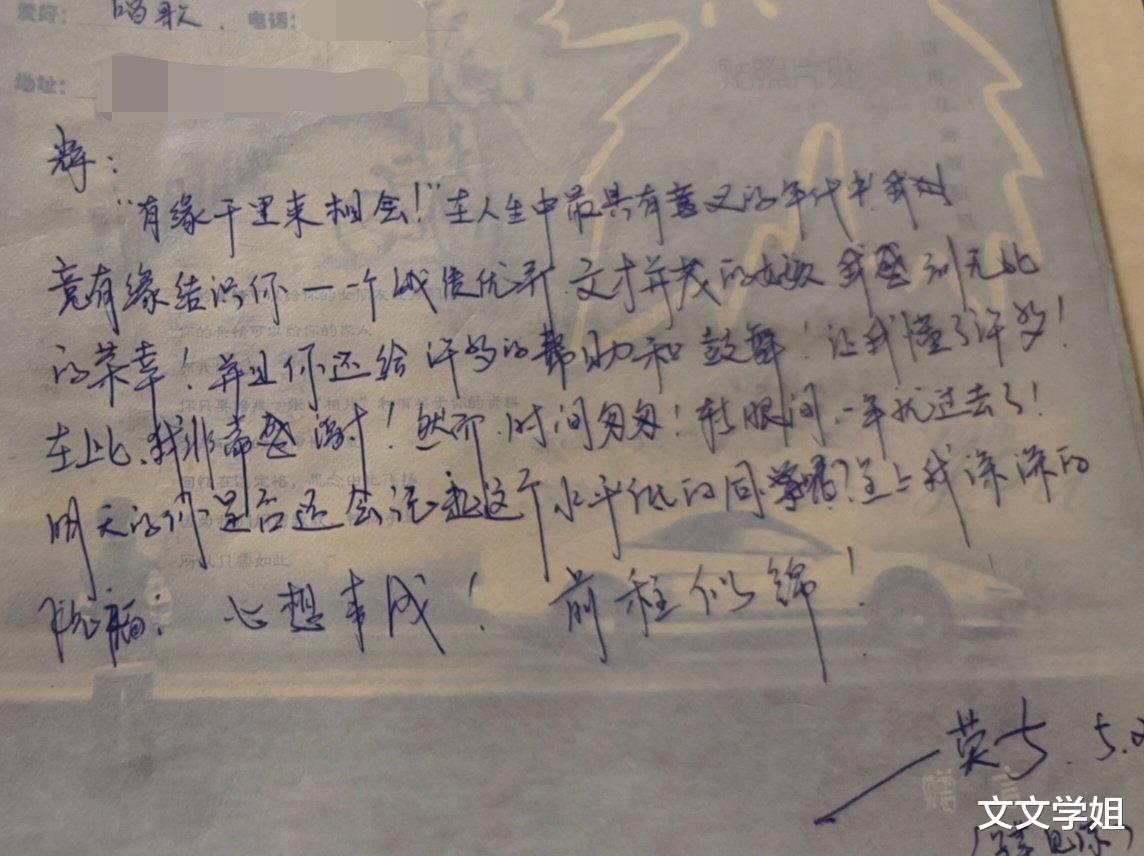 爱好： 唱歌. 电话：
地址：
贴照片处
辉：
"有缘千里来相会！"在人生中最具有意义的年代里,我
竟有缘结识你一一个成绩优异.文才并茂的女孩 我感到无比
的荣幸！并且你还给许多的帮助和鼓舞！让我懂了许多！
在此、我非常感谢！然而.时间匆匆！转眼间.一年就过去了！
明天的你是否还会记起这个水平低的同学喔？送上我深深的
祝福： 心想事成！ 前程似锦！
你的亲情可以给你的家人
所以只需如此
赠言
5.
文文学姐